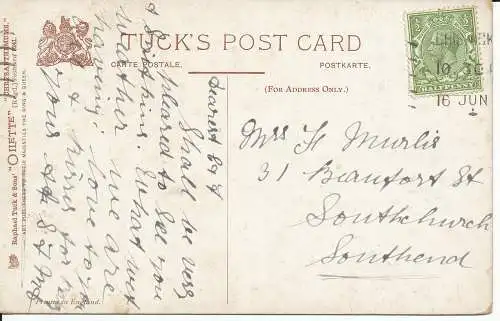 TUCK'S POST CARD
CARTE POSTALE.
POSTKARTE.
(FOR ADDRESS ONLY.)
Raphael Tuck & Sons' "OILETTE"
(Regd.)
ART PUBLISHERS TO THEIR MAJESTIES THE KING & QUEEN.
Printed in England.
HALFPENNY
10
16 JUN
Mrs H Murlis
31 Beaufort St
Southchurch
Southend
Dearest
Shall be very
pleased to see you
& Spitkins. What wet
weather we are
having. love to you
& kisses for
your